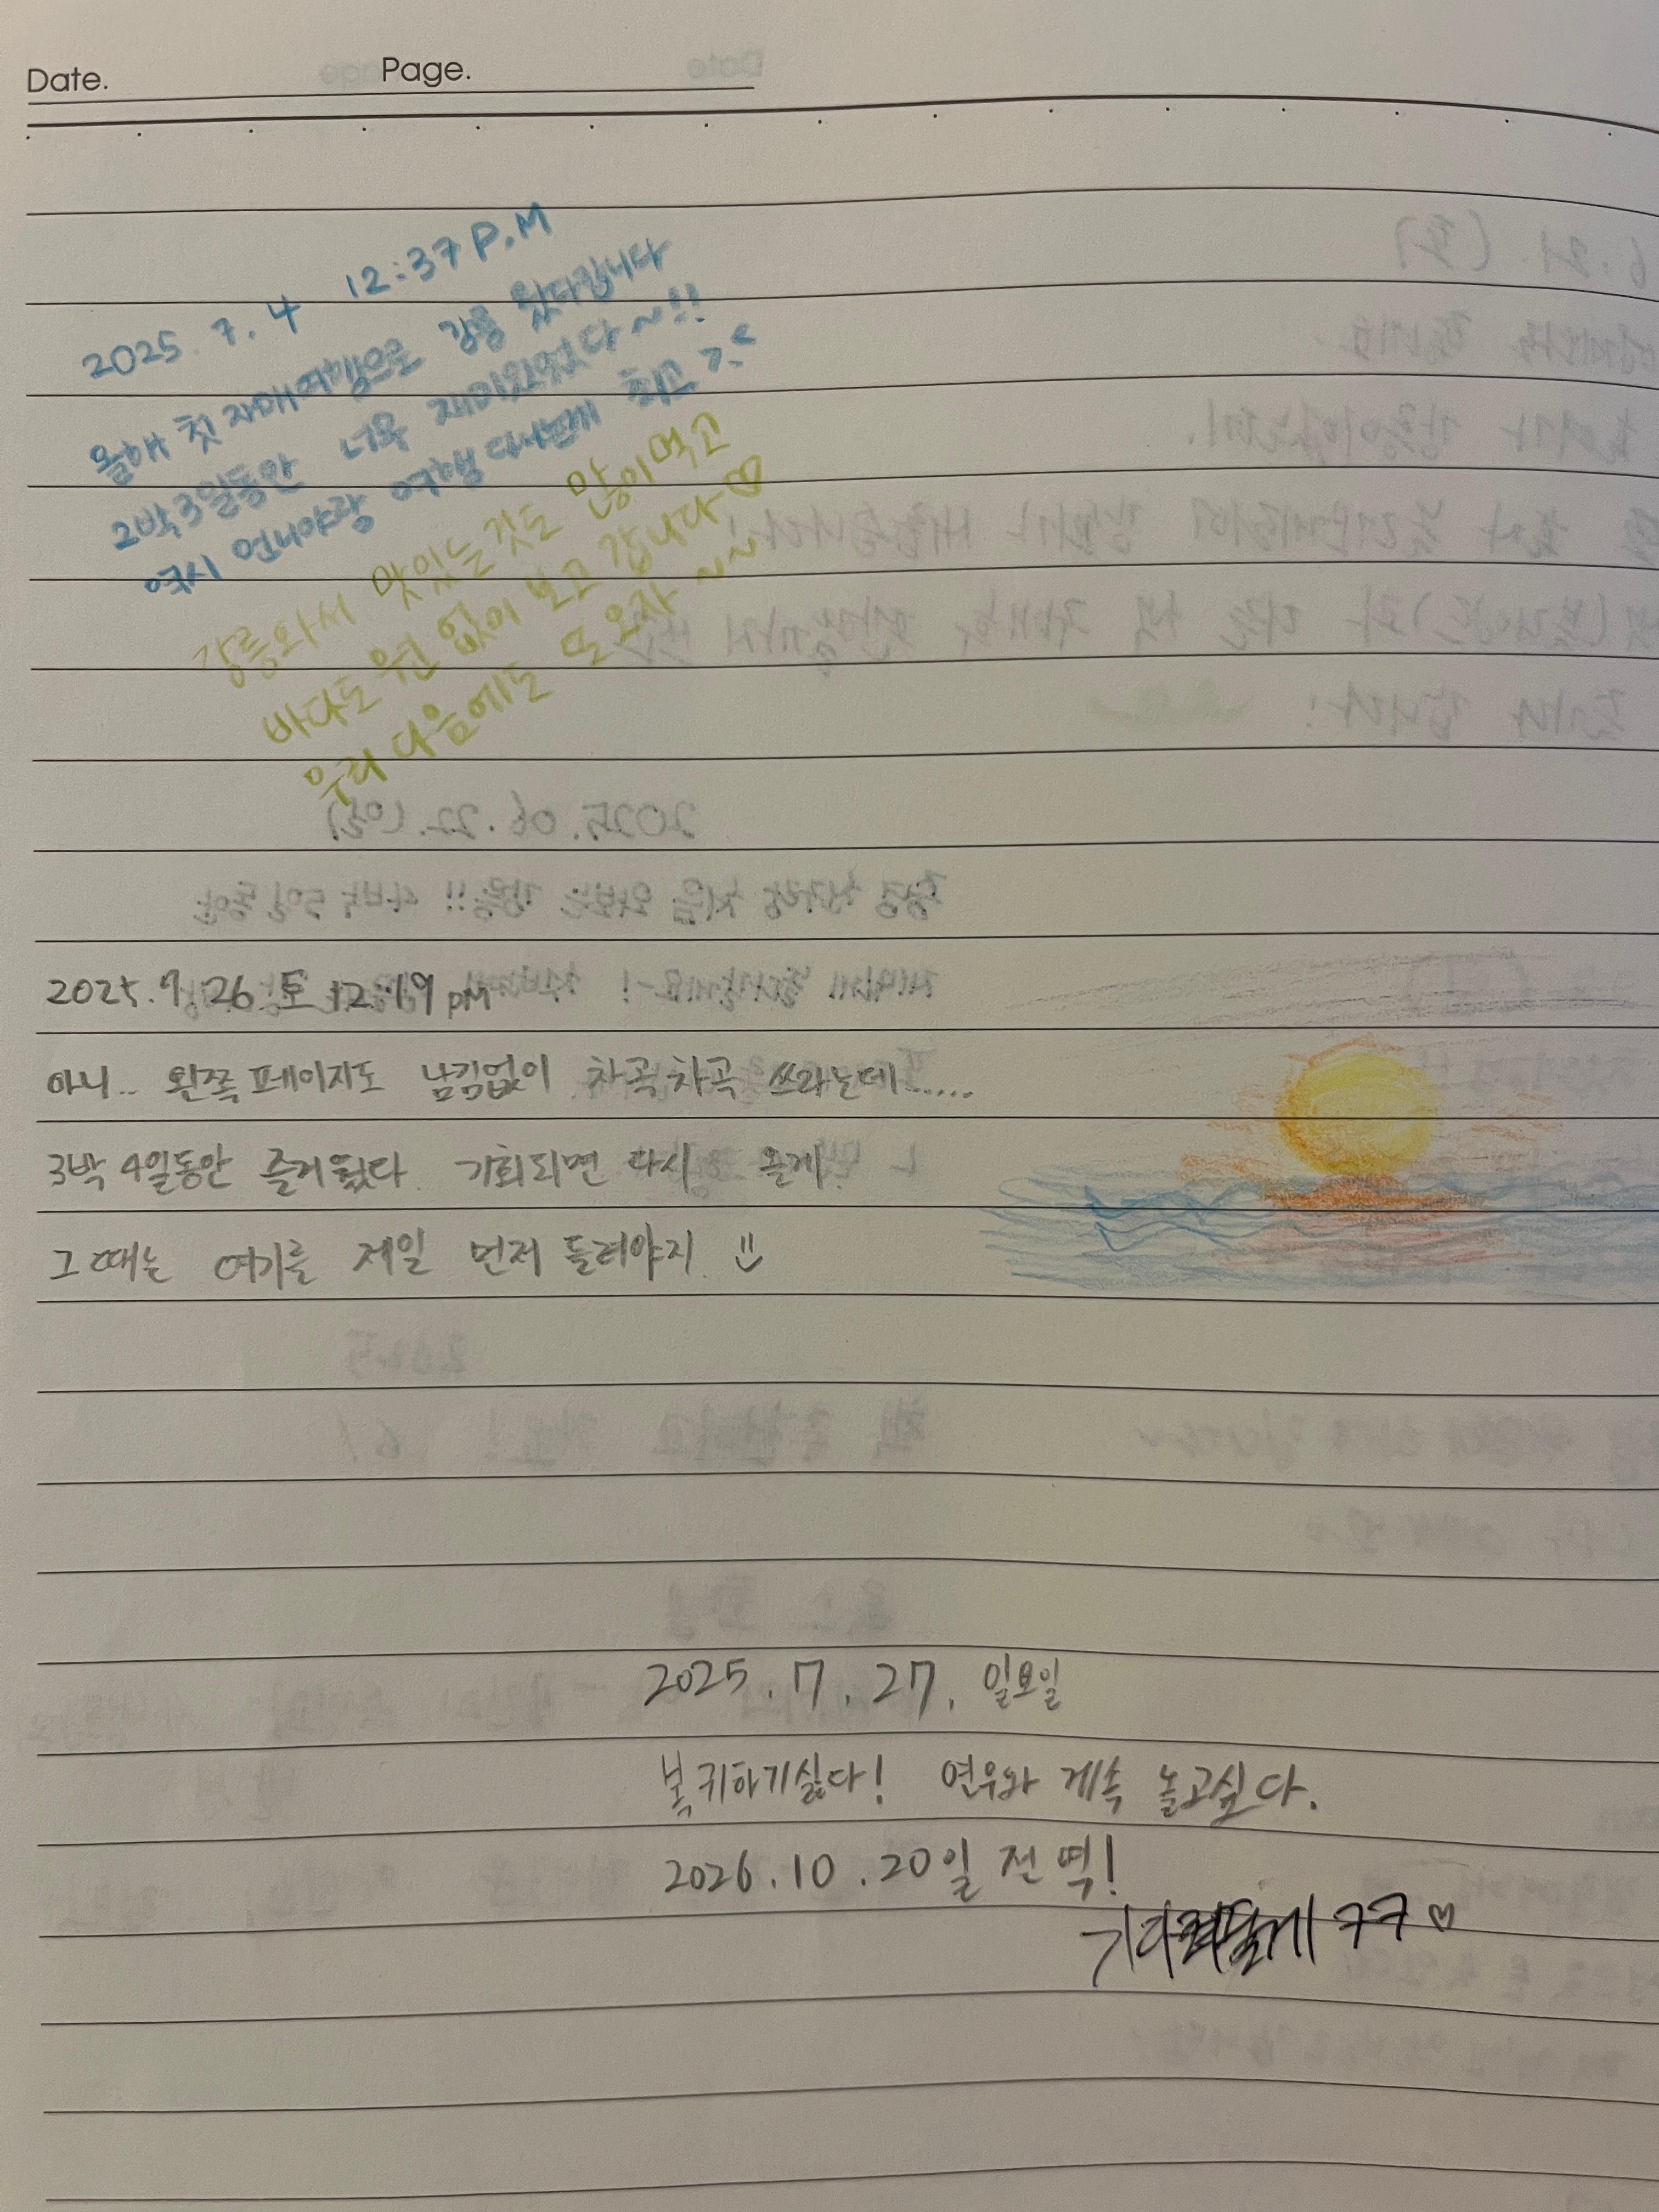 Date. Page.
2025. 7. 4 12:37 P.M
올해 첫 자매여행으로 강릉 왔다갑니다
2박3일동안 너무 재미있었다~!!
역시 언니야랑 여행 다니는게 최고 >.<
강릉와서 맛있는것도 많이먹고
바다도 원 없이 보고 갑니다♡
우리 다음에도 또 오자~~
2025.7.26 토 12:19 pM
아니.. 왼쪽 페이지도 남김없이 차곡차곡 쓰라는데......
3박 4일동안 즐거웠다. 기회되면 다시 올게.
그때는 여기를 제일 먼저 들려야지.
2025. 7. 27. 일요일
복귀하기싫다! 연우와 계속 놀고싶다.
2026.10.20일 전역!
ㅋㅋ♡